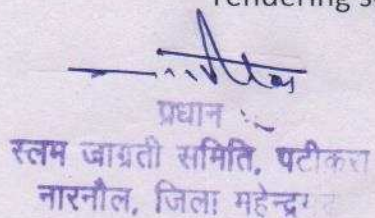 rendering s
प्रधान
स्लम जाग्रती समिति, पटीकरा
नारनौल, जिला महेन्द्रग